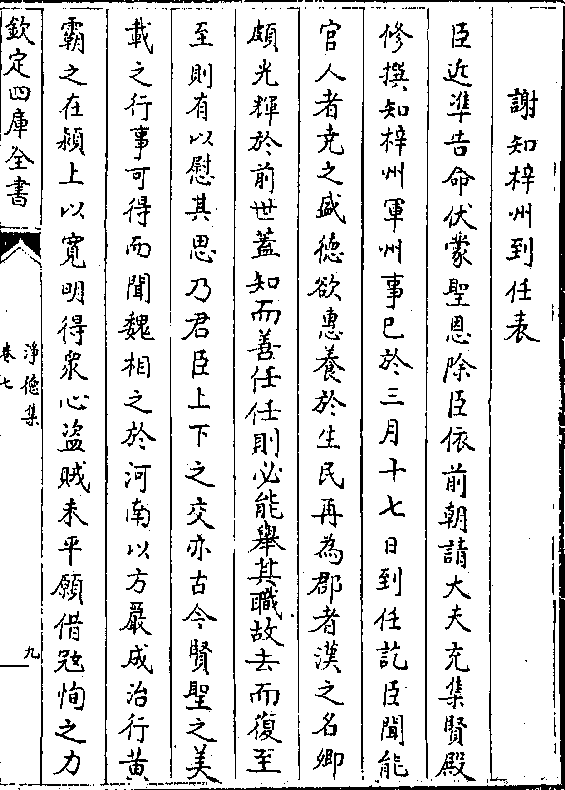 謝知梓州到任表
臣近準告命伏蒙聖恩除臣依前朝請大夫充集賢殿
修撰知梓州軍州事已於三月十七日到任訖臣聞能
官人者堯之盛德欲惠養於生民再為郡者漢之名卿
頗光輝於前世蓋知而善任任則必能舉其職故去而復至
至則有以慰其思乃君臣上下之交亦古今賢聖之美
載之行事可得而聞魏相之於河南以方嚴成治行黃
霸之在潁上以寬明得衆心盜賊未平願借寇恂之力
欽定四庫全書
淨德集
卷七
九